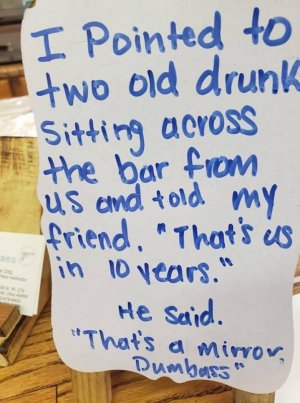 I Pointed to
two old drunk
Sitting across
the bar from
us and told my
friend. "That's us
in 10 years."
He said.
"That's a mirror
Dumbass"